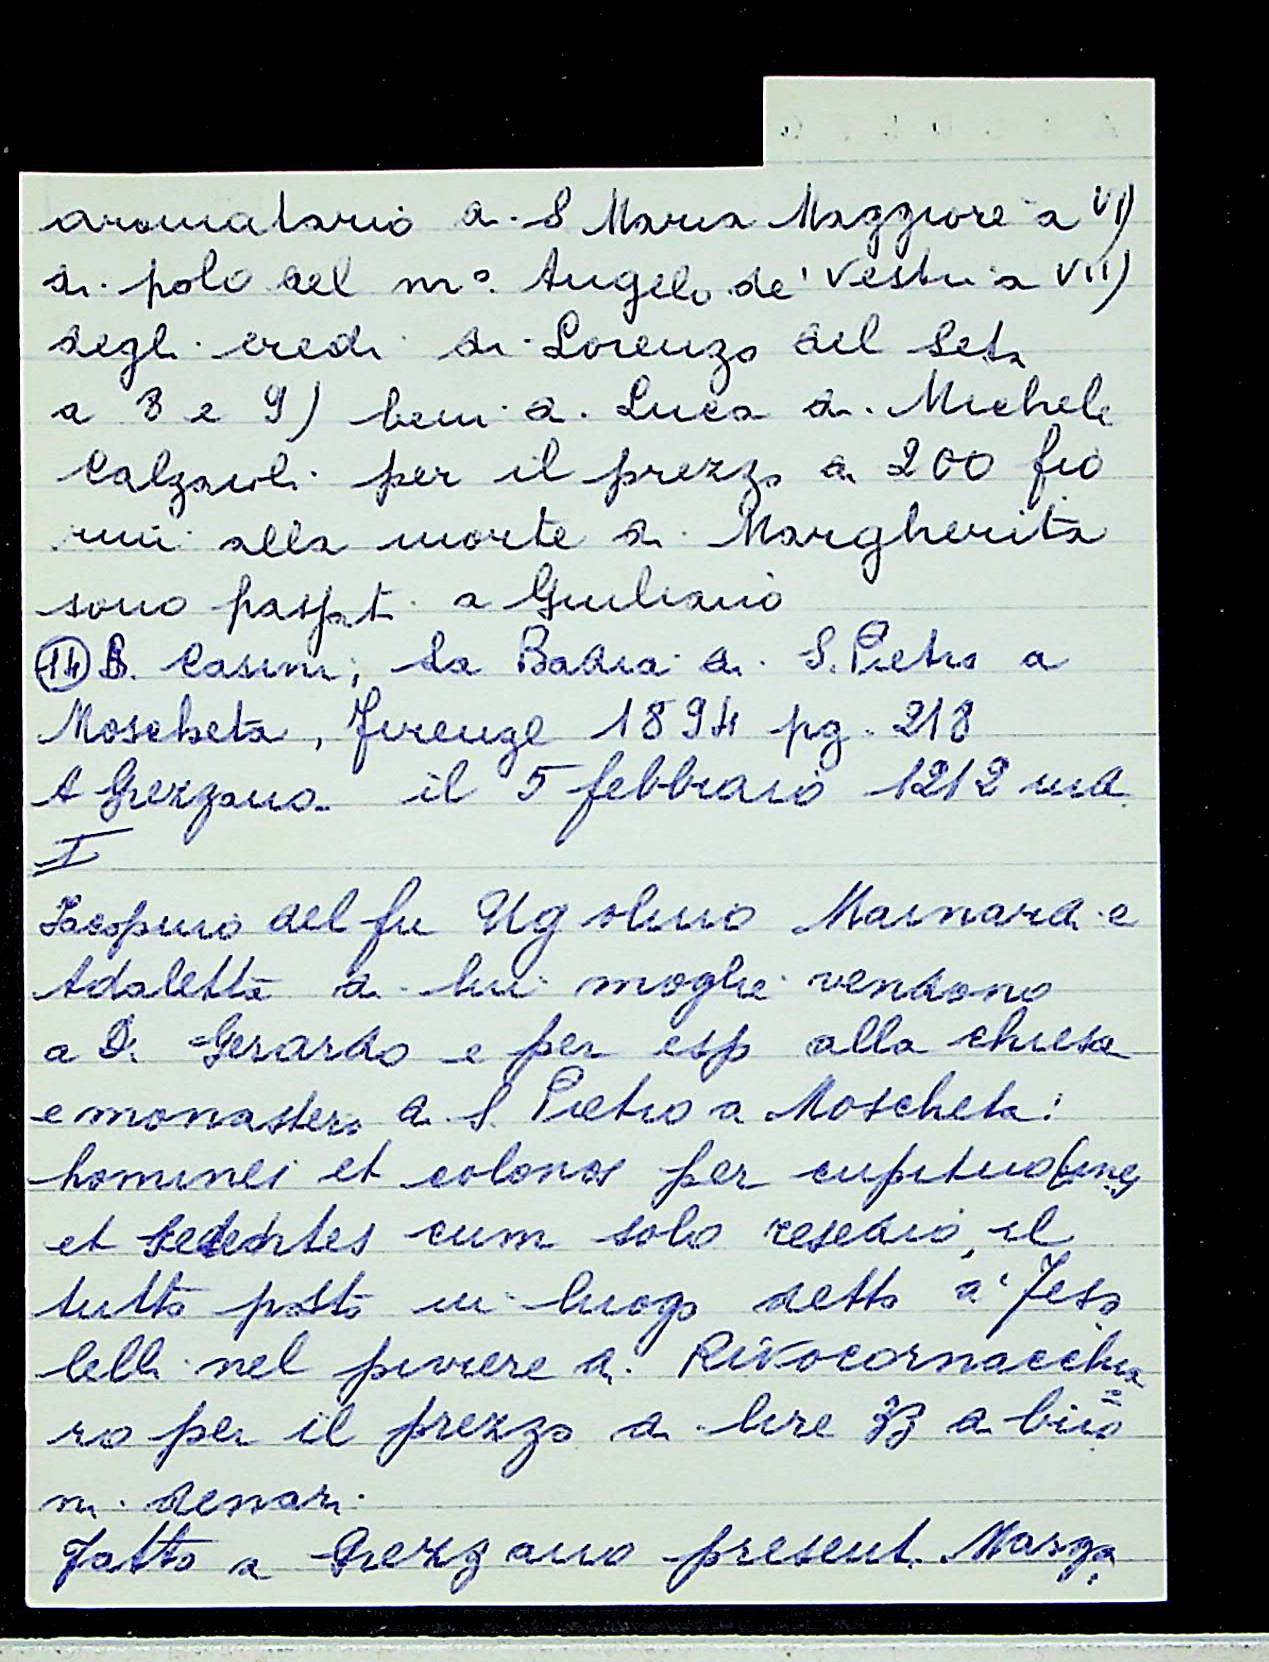 aromatario a S Maria Maggiore a VI)
di polo del mº. Angelo de' Vestri a VII)
degli eredi di Lorenzo del Seta
a 8 e 9) beni di Luca di Michele
Calzaioli per il prezzo di 200 fio
rini alla morte di Margherita
sono passati a Giuliano
(14) B. Casini; La Badia di S. Pietro a
Moscheta, Firenze 1894 pg. 218
A Grezzano il 5 febbraio 1212 ind.
I
Jacopino del fu Ugolino Mainardi e
Adaletta di lui moglie vendono
a D. Gerardo e per esp alla chiesa
e monastero di S. Pietro a Moscheta:
homines et colonos per
et sedentes cum solo resedio, il
tutto posto in luogo detto a'
nel piviere di Rivocornacchia
ro per il prezzo di lire 33 di buo
ni denari.
Fatto a Grezzano presenti